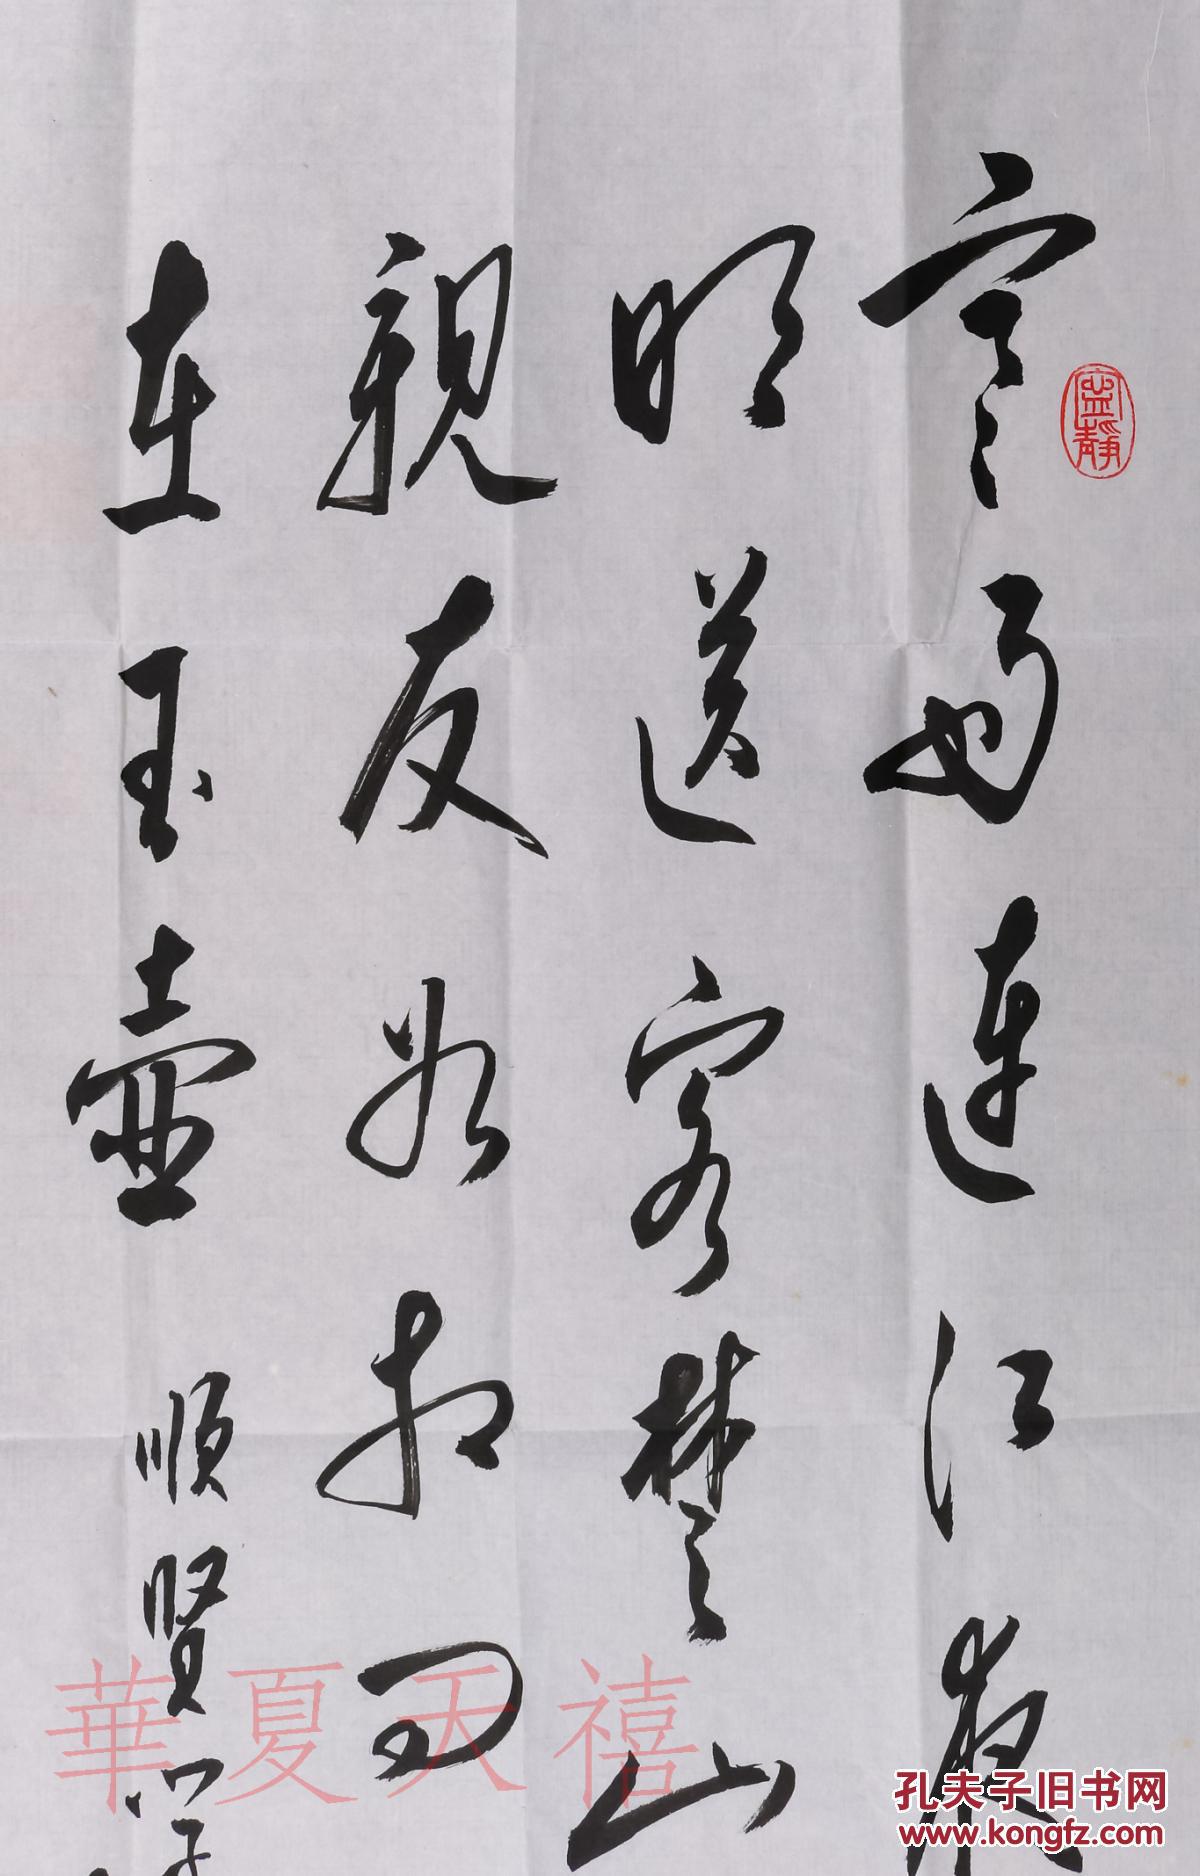 寒雨連江夜
明送客楚山
親友如相問
在玉壺 順賢
寧靜
華夏天禧
孔夫子旧书网
www.kongfz.com